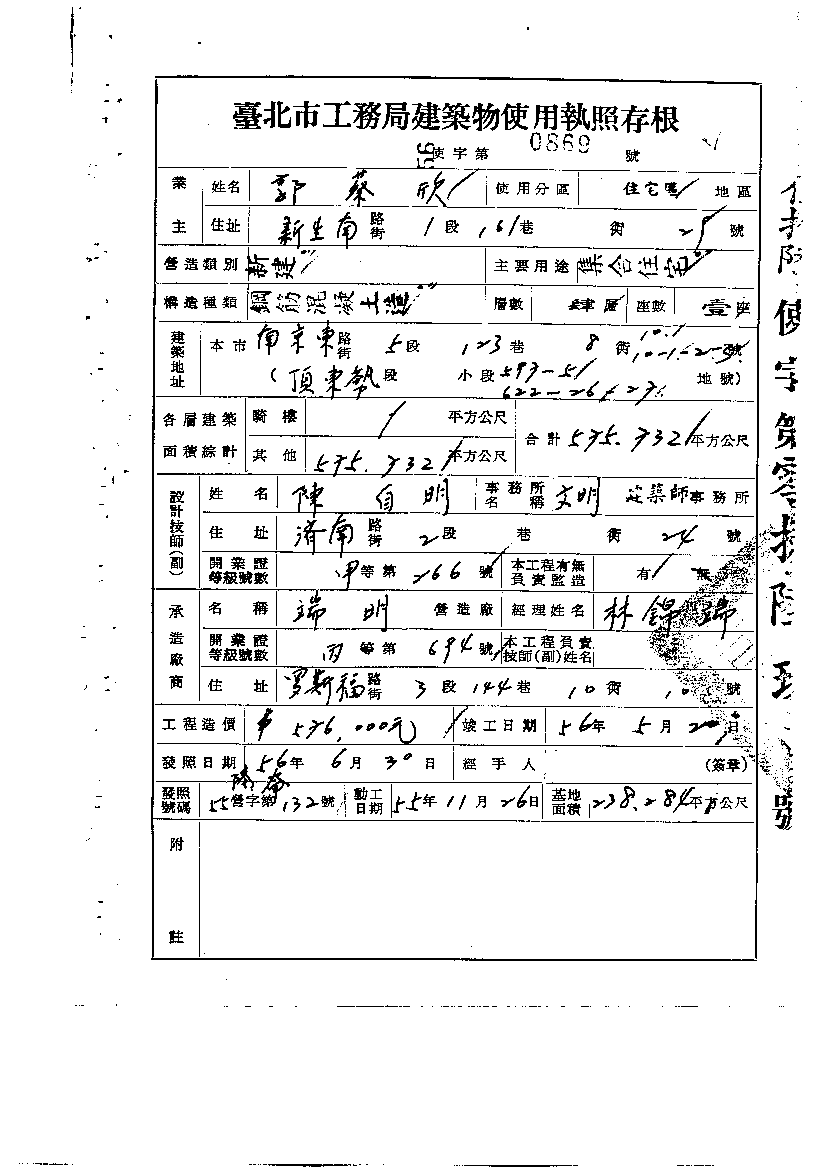 臺北市工務局建築物使用執照存根
56使字第 0869 號
業主 姓名 郭蔡欣 使用分區 住宅區 地區
住址 新生南 路街 1段 161巷 衖 號
營造類別 新建 主要用途 集合住宅
構造種類 鋼筋混凝土造 層數 肆層 座數 壹座
建築地址 本市 南京東 路街 5段 123巷 8衖 10.1 10-1-2-3號
(頂東勢 段 小段 593-51 622-26 地號)
各層建築面積綜計 騎樓 / 平方公尺 合計 575.732 平方公尺
其他 575.732 平方公尺
設計技師(副) 姓名 陳自明 事務所名稱 文明 建築師事務所
住址 濟南 路街 2段 巷 衖 24號
開業證等級號數 甲等第 266 號 本工程有無負責監造 有 無
承造廠商 名稱 瑞明 營造廠 經理姓名 林錦瑞
開業證等級號數 丙等第 694 號 本工程負責技師(副)姓名
住址 羅斯福 路街 3段 144巷 10衖 10號
工程造價 576,000元 竣工日期 56年 5月 20日
發照日期 56年 6月 30日 經手人 (簽章)
發照號碼 55營字第 132號 動工日期 55年 11月 26日 基地面積 238.284 平方公尺
附註
使字第零捌陸玖號